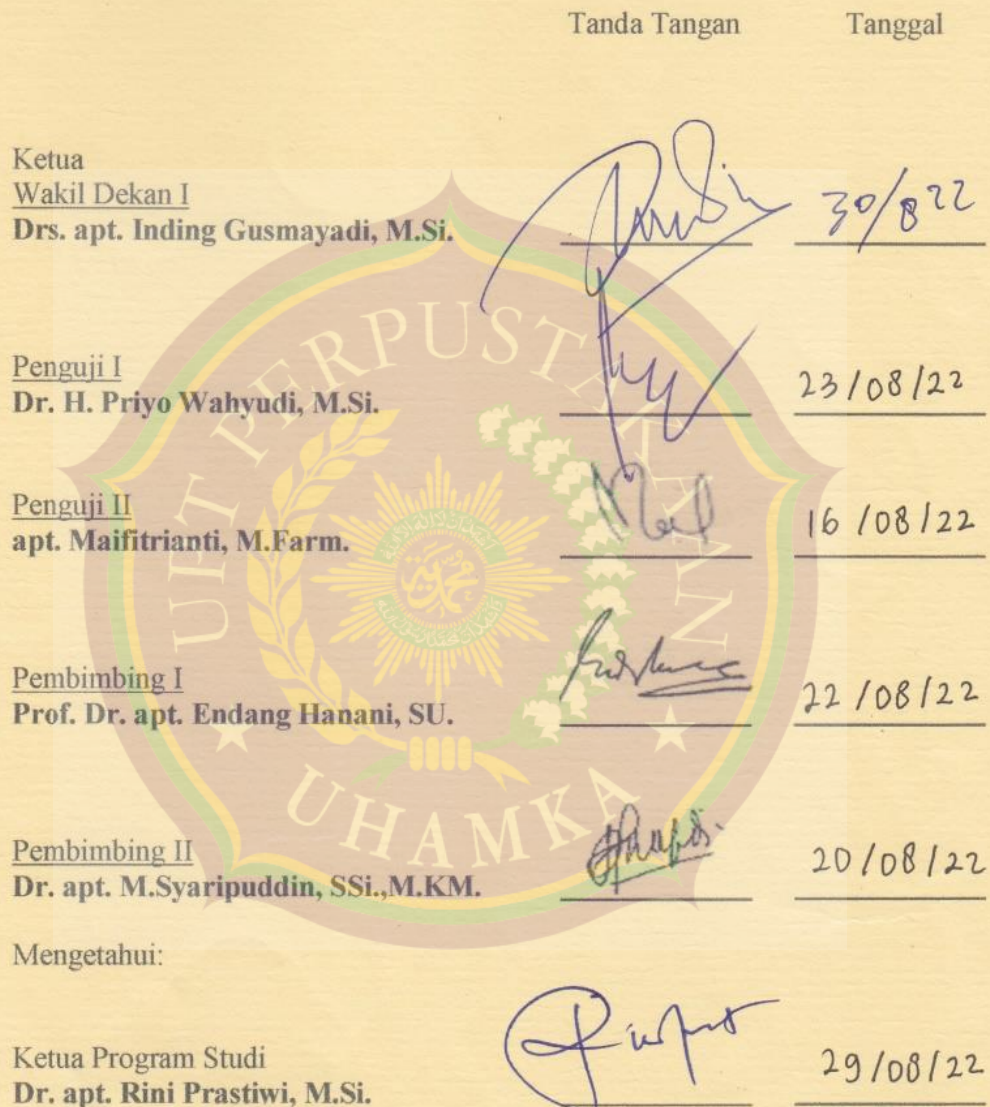 Tanda Tangan Tanggal
Ketua
Wakil Dekan I
Drs. apt. Inding Gusmayadi, M.Si. 30/8 22
Penguji I
Dr. H. Priyo Wahyudi, M.Si. 23/08/22
Penguji II
apt. Maifitrianti, M.Farm. 16/08/22
Pembimbing I
Prof. Dr. apt. Endang Hanani, SU. 22/08/22
Pembimbing II
Dr. apt. M.Syaripuddin, SSi.,M.KM. 20/08/22
Mengetahui:
Ketua Program Studi
Dr. apt. Rini Prastiwi, M.Si. 29/08/22
UPT PERPUSTAKAAN
UHAMKA